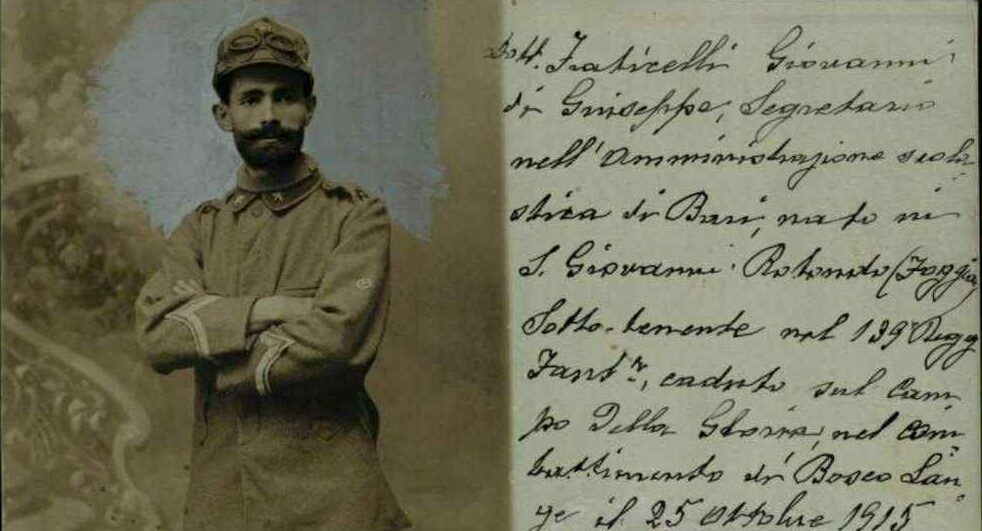 Dott. Fraticelli Giovanni
di Giuseppe, Segretario
nell'Amministrazione scola
stica di Bari, nato in
S. Giovanni Rotondo (Foggia)
Sotto-tenente nel 139 Regg
Fant.ª, caduto sul Cam
po Della Gloria, nel com-
battimento di Bosco Lan
ge il 25 ottobre 1915